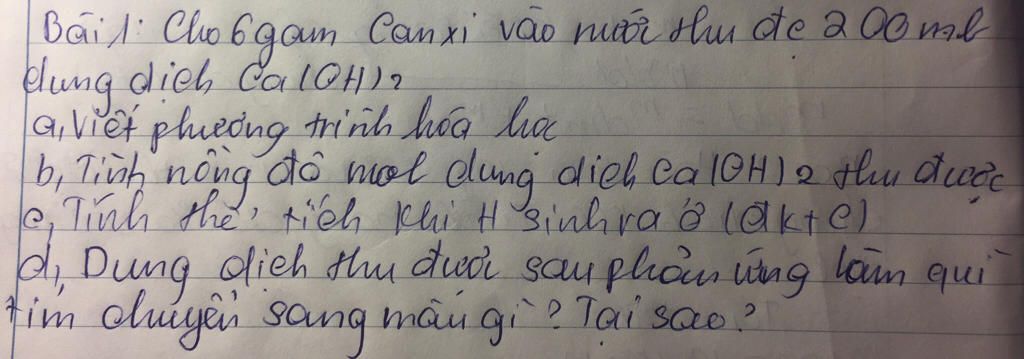 Bài 1: Cho 6 gam Canxi vào nước thu đc 200 ml
dung dịch Ca(OH)2
a, Viết phương trình hóa học
b, Tính nồng độ mol dung dịch Ca(OH)2 thu được
c, Tính thể tích khí H sinh ra ở (đktc)
d, Dung dịch thu được sau phản ứng làm quì
tím chuyển sang màu gì? Tại sao?